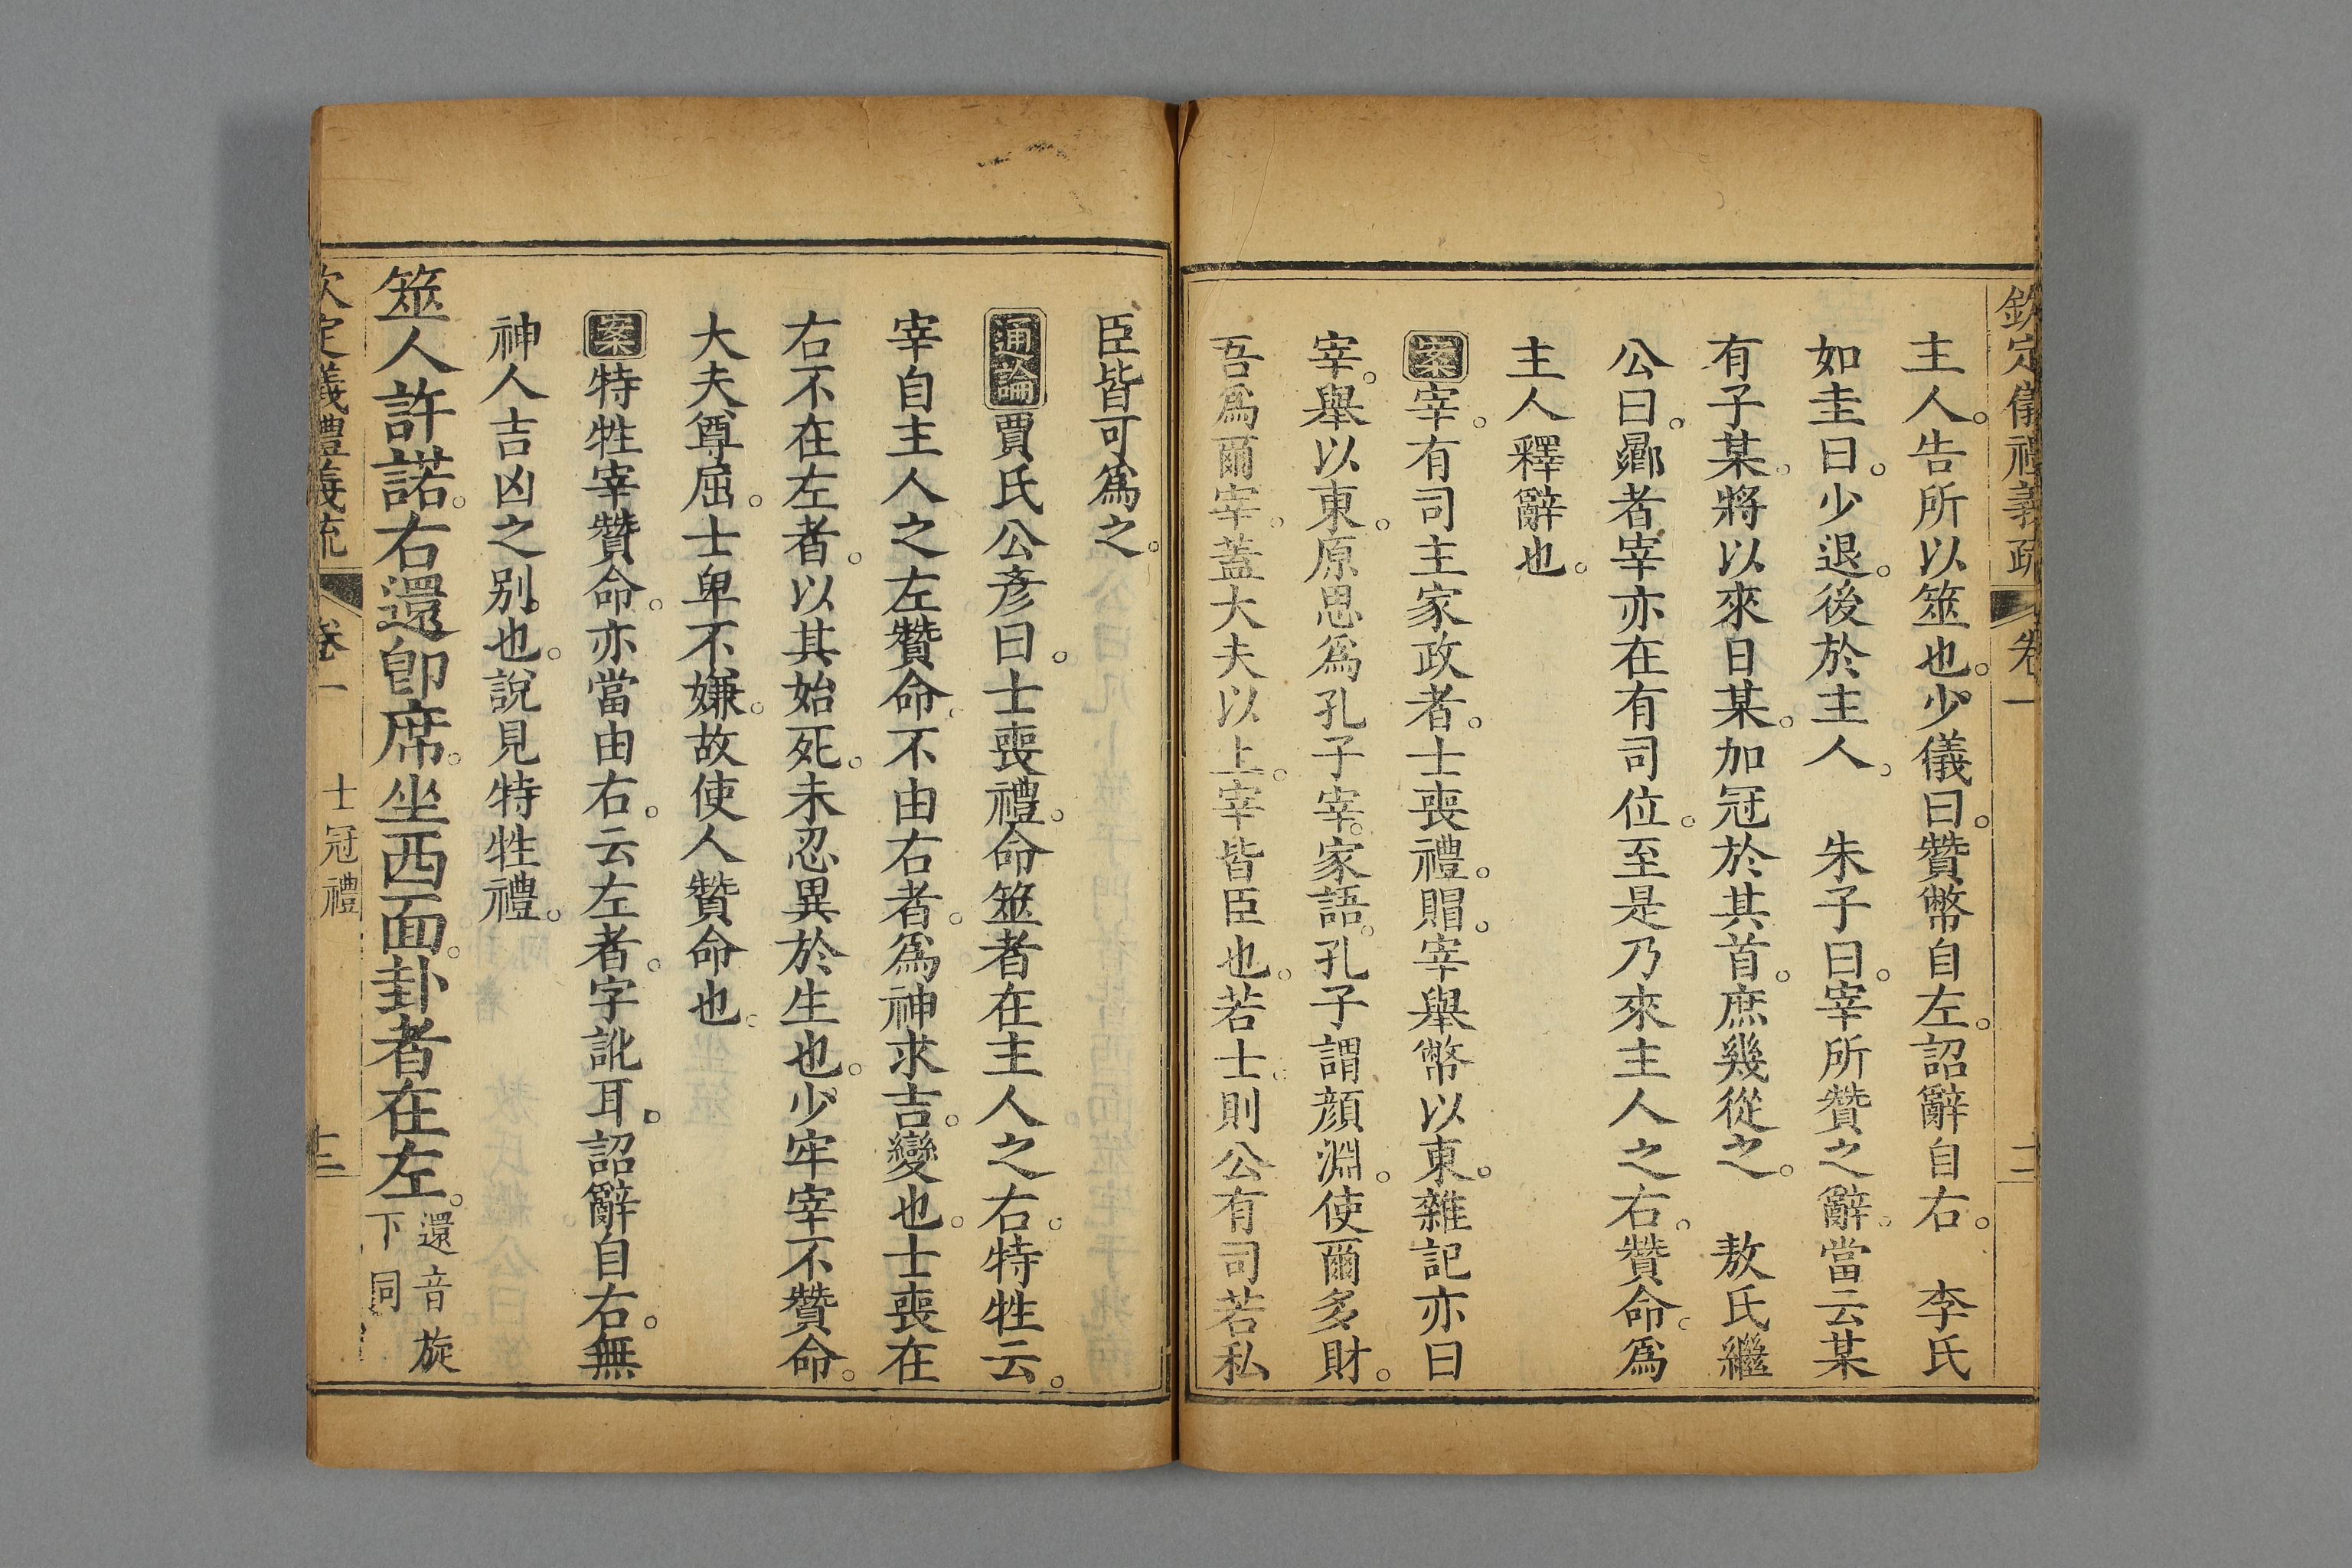 欽定儀禮義疏 卷一 十二
主人。告所以筮也。少儀曰。贊幣自左。詔辭自右。 李氏
如圭曰。少退。後於主人。 朱子曰。宰所贊之辭。當云某
有子某。將以來日某。加冠於其首。庶幾從之。 敖氏繼
公曰。曏者宰亦在有司位。至是乃來主人之右。贊命。爲
主人釋辭也。
案宰。有司主家政者。士喪禮。賵。宰舉幣以東。雜記亦曰
宰。舉以東。原思爲孔子宰。家語。孔子謂顏淵。使爾多財。
吾爲爾宰。蓋大夫以上。宰皆臣也。若士。則公有司若私
臣皆可爲之。
通論賈氏公彥曰。士喪禮。命筮者在主人之右。特牲云。
宰自主人之左贊命。不由右者。爲神求吉。變也。士喪在
右不在左者。以其始死。未忍異於生也。少牢宰不贊命。
大夫尊屈。士卑不嫌。故使人贊命也。
案特牲宰贊命。亦當由右。云左者。字訛耳。詔辭自右。無
神人吉凶之别也。說見特牲禮。
筮人許諾。右還卽席。坐西面。卦者在左。還音旋
下同
欽定儀禮義疏 卷一 士冠禮 十三